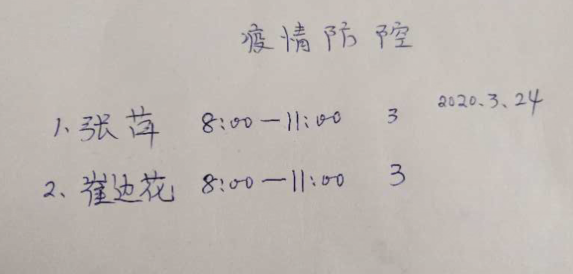 疫情防控
2020.3.24
1、张苗 8:00—11:00 3
2、崔边花 8:00—11:00 3